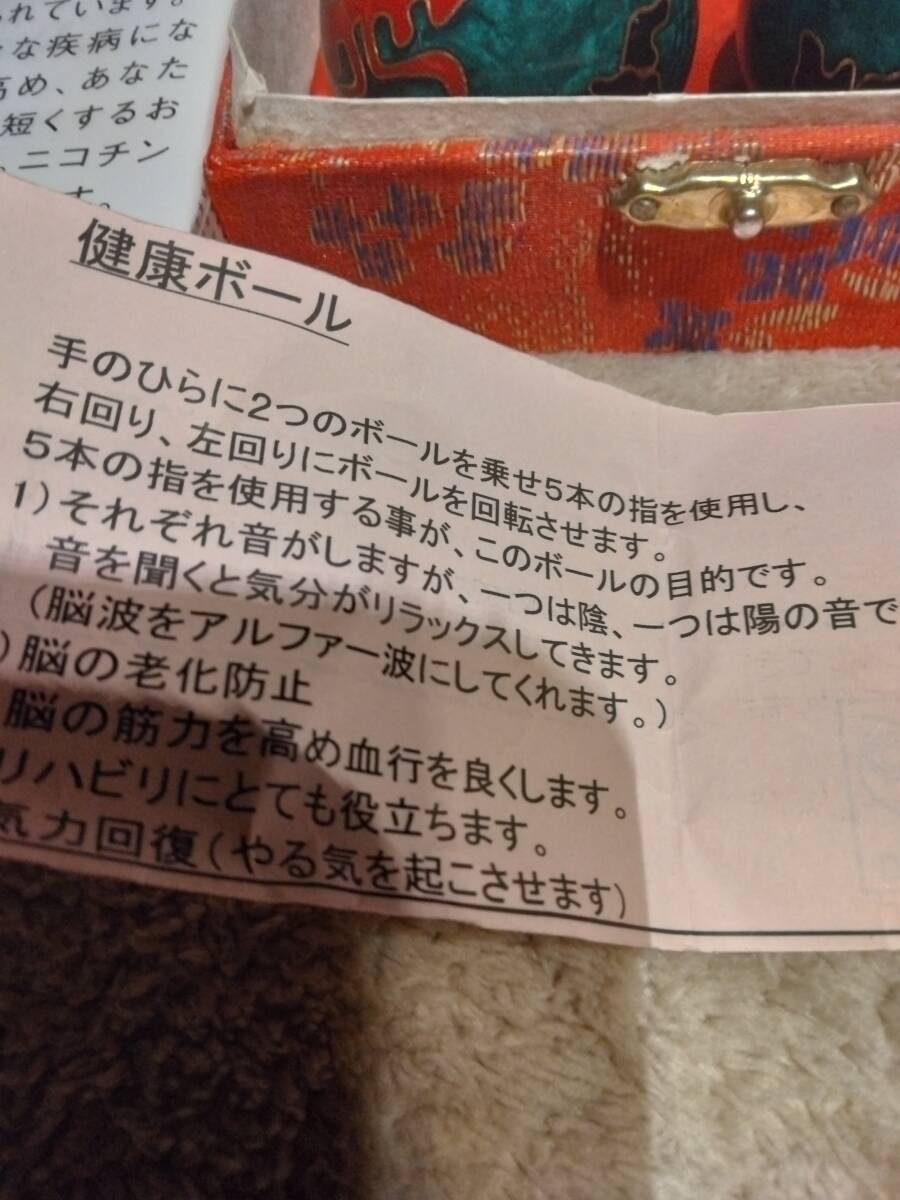 れています。
な疾病にな
高め、あなた
短くするお
ニコチン
す。
健康ボール
手のひらに2つのボールを乗せ5本の指を使用し、
右回り、左回りにボールを回転させます。
5本の指を使用する事が、このボールの目的です。
1)それぞれ音がしますが、一つは陰、一つは陽の音で
音を聞くと気分がリラックスしてきます。
(脳波をアルファー波にしてくれます。)
)脳の老化防止
脳の筋力を高め血行を良くします。
リハビリにとても役立ちます。
気力回復(やる気を起こさせます)